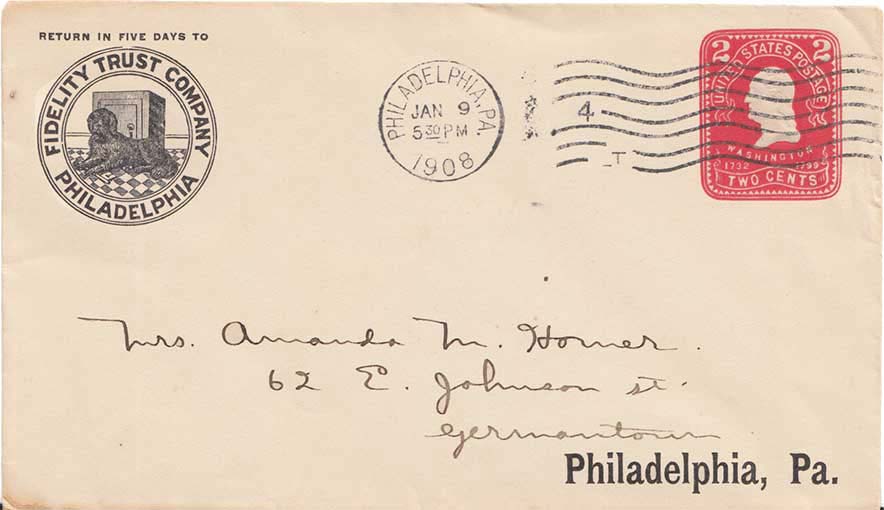 RETURN IN FIVE DAYS TO
FIDELITY TRUST COMPANY
PHILADELPHIA
PHILADELPHIA, PA.
JAN 9
5 30 PM
1908
4
T
2 2
UNITED STATES POSTAGE
WASHINGTON
1732 1799
TWO CENTS
Mrs. Amanda M. Horner.
62 E. Johnson st.
Germantown
Philadelphia, Pa.